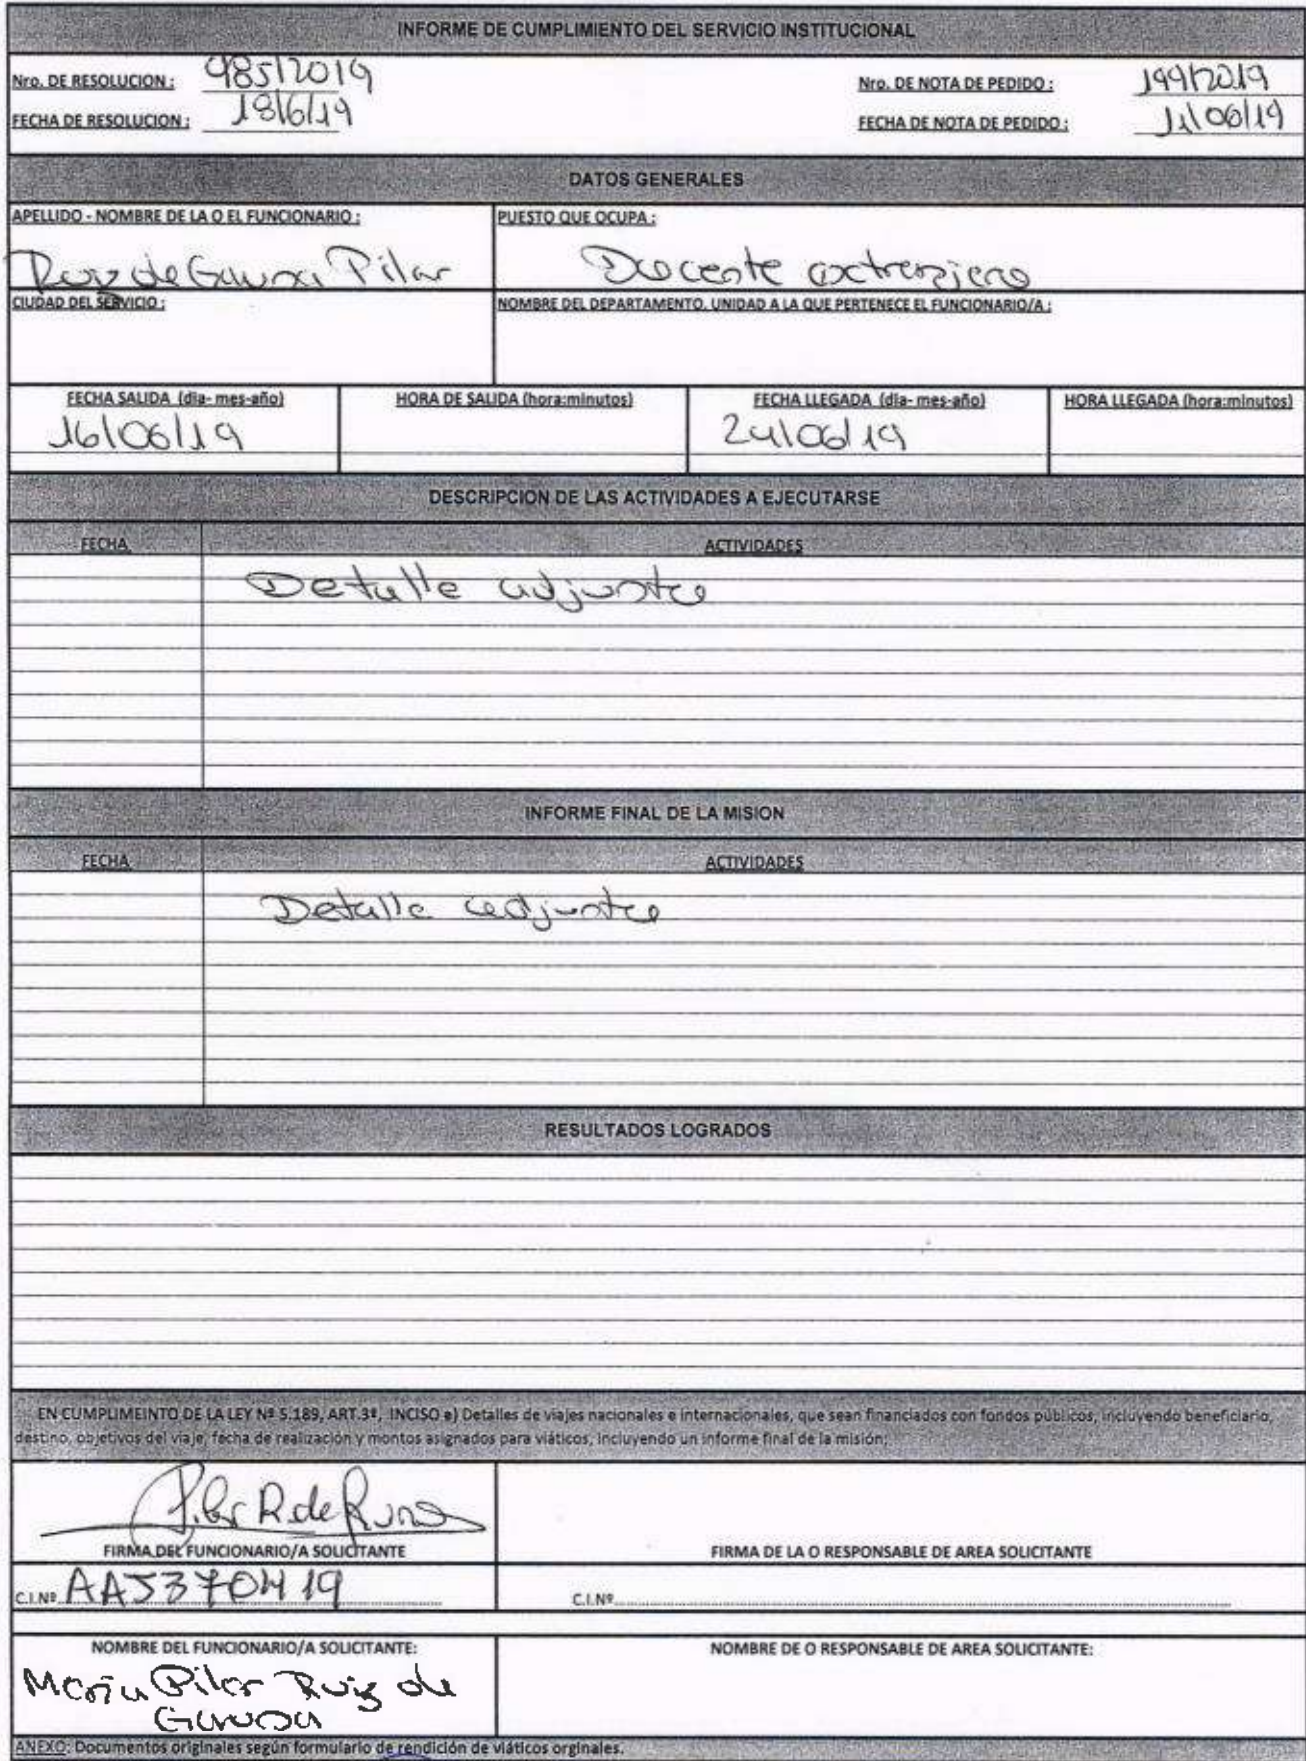 INFORME DE CUMPLIMIENTO DEL SERVICIO INSTITUCIONAL
Nro. DE RESOLUCION : 485/2019
Nro. DE NOTA DE PEDIDO : 199/2019
FECHA DE RESOLUCION : 18/6/19
FECHA DE NOTA DE PEDIDO : 11/06/19
DATOS GENERALES
APELLIDO - NOMBRE DE LA O EL FUNCIONARIO :
PUESTO QUE OCUPA :
Ruiz de Gauna Pilar
Docente extranjero
CIUDAD DEL SERVICIO :
NOMBRE DEL DEPARTAMENTO, UNIDAD A LA QUE PERTENECE EL FUNCIONARIO/A :
FECHA SALIDA (dia- mes-año)
HORA DE SALIDA (hora:minutos)
FECHA LLEGADA (dia- mes-año)
HORA LLEGADA (hora:minutos)
16/06/19
24/06/19
DESCRIPCION DE LAS ACTIVIDADES A EJECUTARSE
FECHA
ACTIVIDADES
Detalle adjunto
INFORME FINAL DE LA MISION
FECHA
ACTIVIDADES
Detalle adjunto
RESULTADOS LOGRADOS
EN CUMPLIMEINTO DE LA LEY Nº 5.189, ART.3º, INCISO e) Detalles de viajes nacionales e internacionales, que sean financiados con fondos públicos, incluyendo beneficiario,
destino, objetivos del viaje, fecha de realización y montos asignados para viáticos, incluyendo un informe final de la misión;
Pilar R de Gauna
FIRMA DEL FUNCIONARIO/A SOLICITANTE
FIRMA DE LA O RESPONSABLE DE AREA SOLICITANTE
C.I.Nº
C.I.Nº
NOMBRE DEL FUNCIONARIO/A SOLICITANTE:
NOMBRE DE O RESPONSABLE DE AREA SOLICITANTE:
María Pilar Ruiz de
Gauna
ANEXO: Documentos originales según formulario de rendición de viáticos orginales.